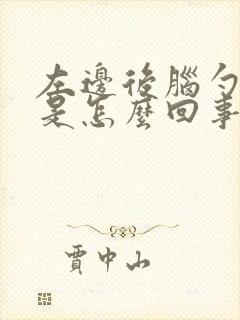 左邊後腦勺
是怎麼回事
賈中山